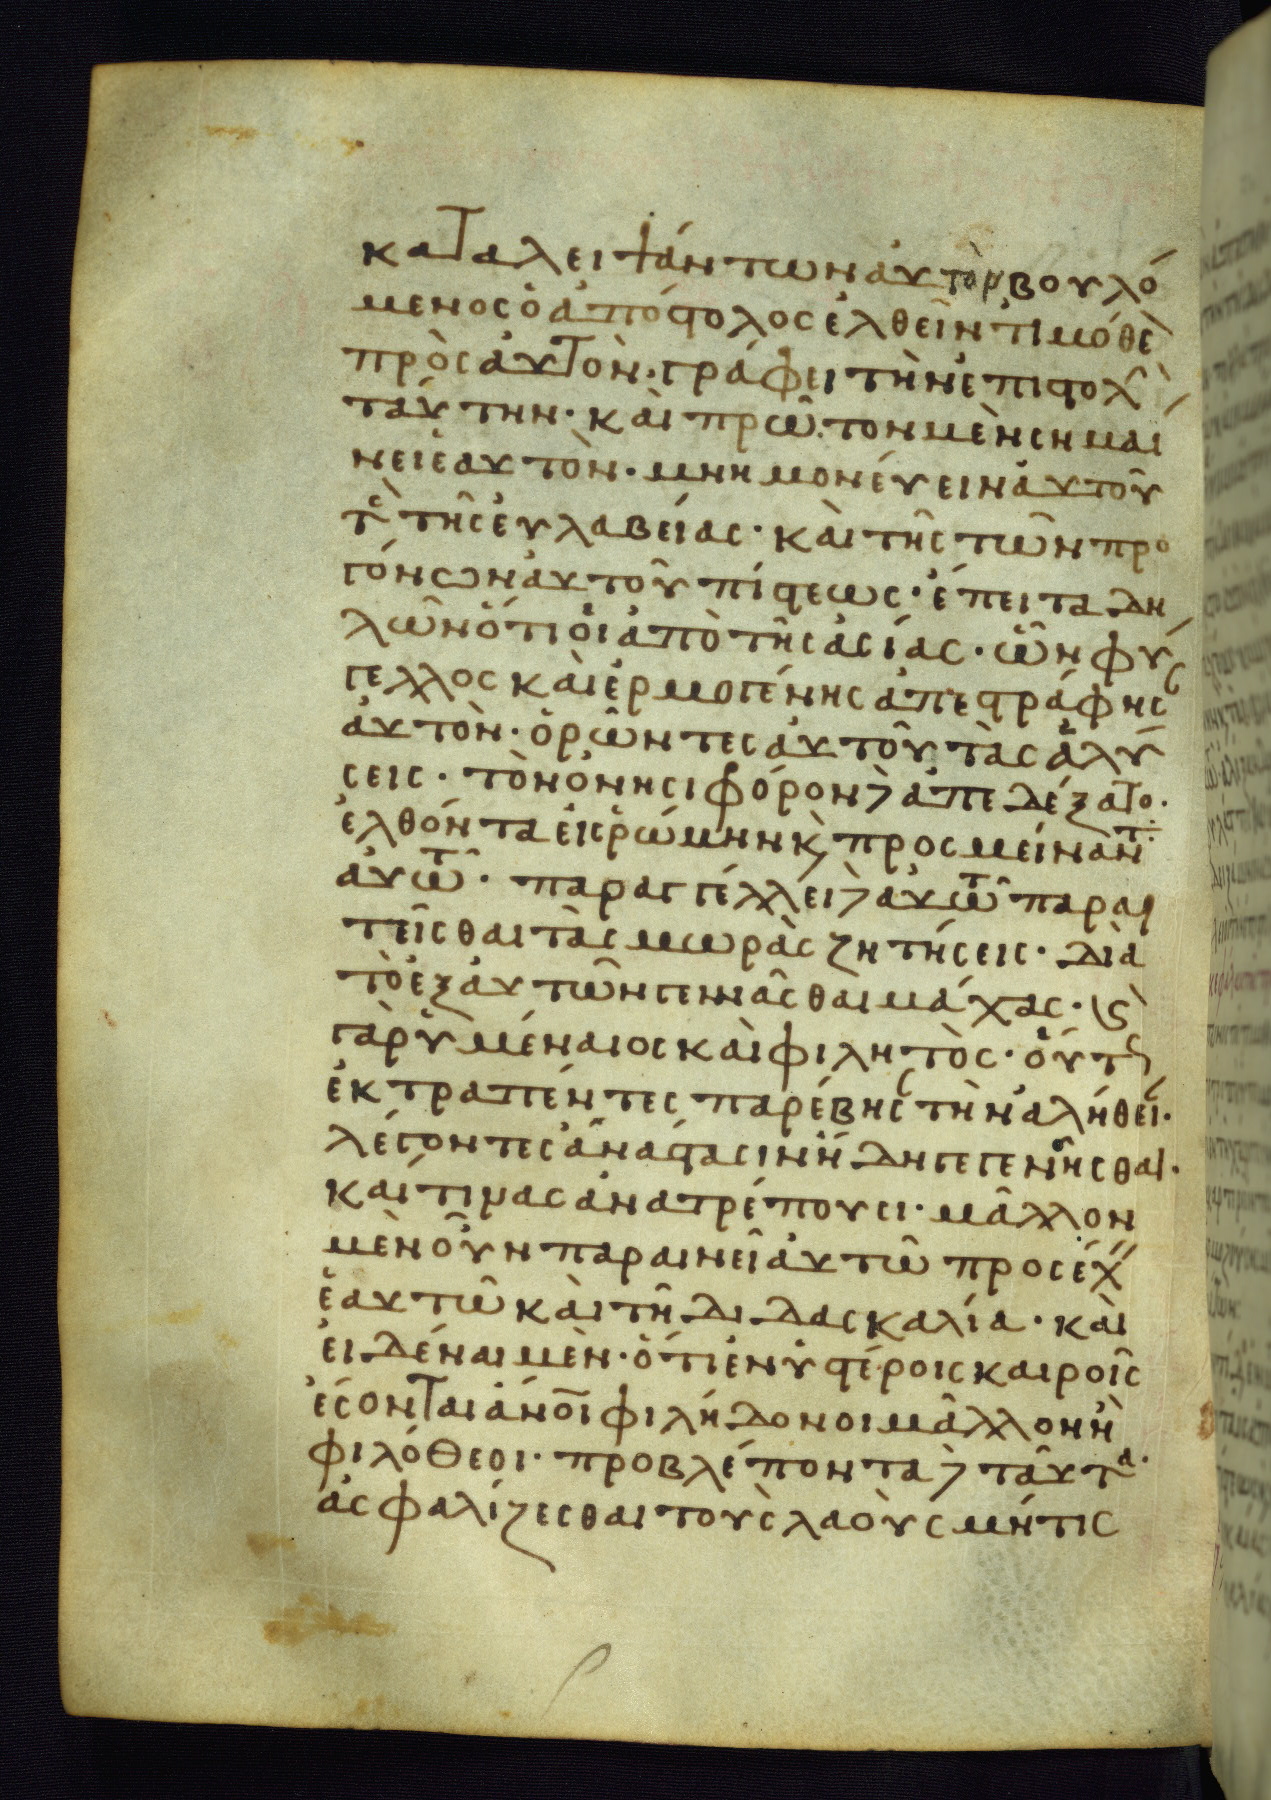 καταλειψάντων αὐτὸν βουλό
μενος ὁ ἀπόστολος ἐλθεῖν τιμόθε
πρὸς αὐτὸν· γράφει τὴν ἐπιστολ
ταύτην· καὶ πρῶτον μὲν σημαί
νει ἑαυτὸν· μνημονεύειν αὐτοῦ
τε τῆς εὐλαβείας· καὶ τῆς τῶν προ
γόνων αὐτοῦ πίστεως· ἔπειτα δη
λῶν ὅτι οἱ ἀπὸ τῆς ἀσίας· ὧν φύ
γελλος καὶ ἑρμογένης ἀπεστράφησ
αὐτὸν· ὁρῶντες αὐτοῦ τὰς ἁλύ
σεις· τὸν ὀνησιφόρον δὲ ἀπεδέξατο·
ἐλθόντα εἰς ῥώμην κ̀ προσμείναντ
αὐτῶ· παραγγέλλει δὲ αὐτῶ παραι
τεῖσθαι τὰς μωρὰς ζητήσεις· διὰ
τὸ ἐξ αὐτῶν γεννᾶσθαι μάχας· ὡς
γὰρ ὑμέναιος καὶ φιλητὸς· οὕτως
ἐκτραπέντες παρέβησ τὴν ἀλήθει·
λέγοντες ἀνάστασιν ἤδη γεγενῆσθαι·
καί τινας ἀνατρέπουσι· μᾶλλον
μὲν οὖν παραινεῖ αὐτῶ προσέχ
ἑαυτῶ καὶ τῆ διδασκαλία· καὶ
εἰδέναι μὲν· ὅτι ἐν ὑστέροις καιροῖς
ἔσονται ἄνοι φιλήδονοι μᾶλλον ἢ
φιλόθεοι· προβλέποντα δὲ ταῦτα·
ἀσφαλίζεσθαι τοὺς λαοὺς μήτις